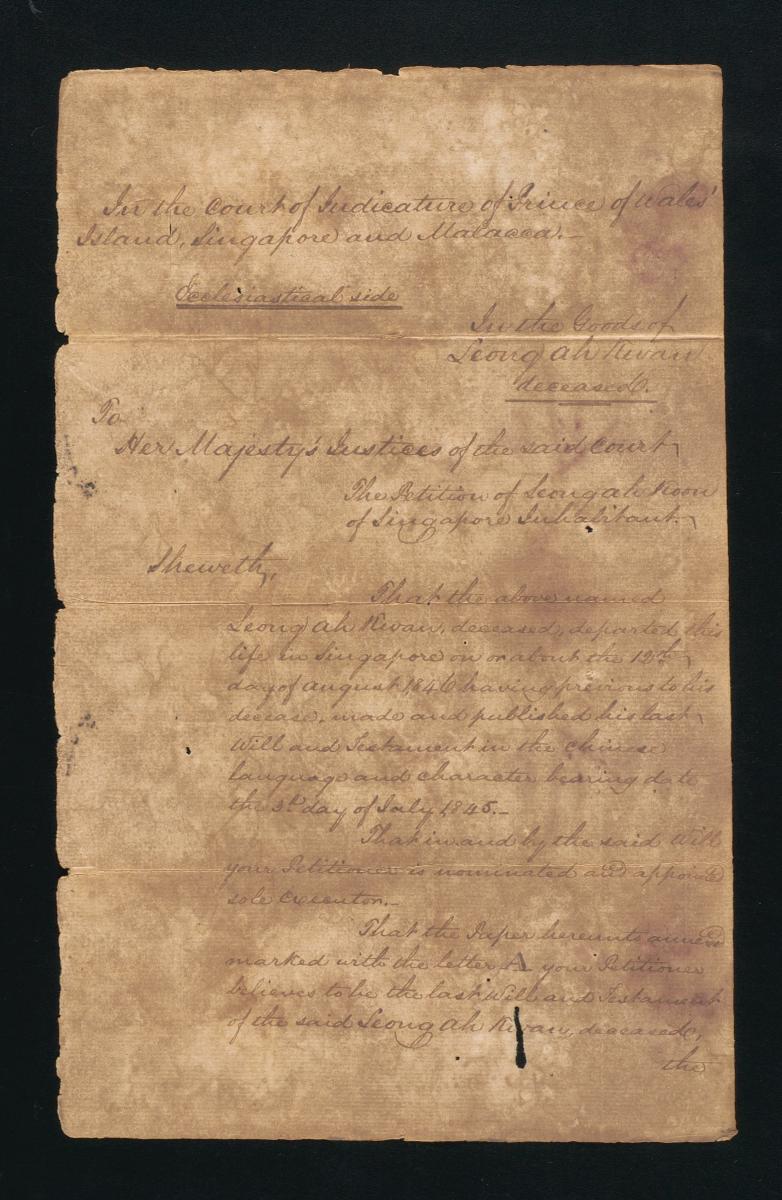 In the Court of Judicature of Prince of Wales'
Island, Singapore and Malacca.–
Ecclesiastical side
In the Goods of
Leong Ah Kwan
deceased.
To
Her Majesty's Justices of the said Court
The Petition of Leong ah Koon
of Singapore Inhabitant.
Sheweth,
That the above named
Leong Ah Kwan, deceased, departed this
life in Singapore on or about the 12th
day of August 1846 having previous to his
decease, made and published his last
Will and Testament in the Chinese
language and character bearing date
the 3d day of July 1845.–
That in and by the said Will
your Petitioner is nominated and appointed
sole executor.–
That the Paper hereunto annexed
marked with the letter A your Petitioner
believes to be the last Will and Testament
of the said Leong Ah Kwan, deceased,
the